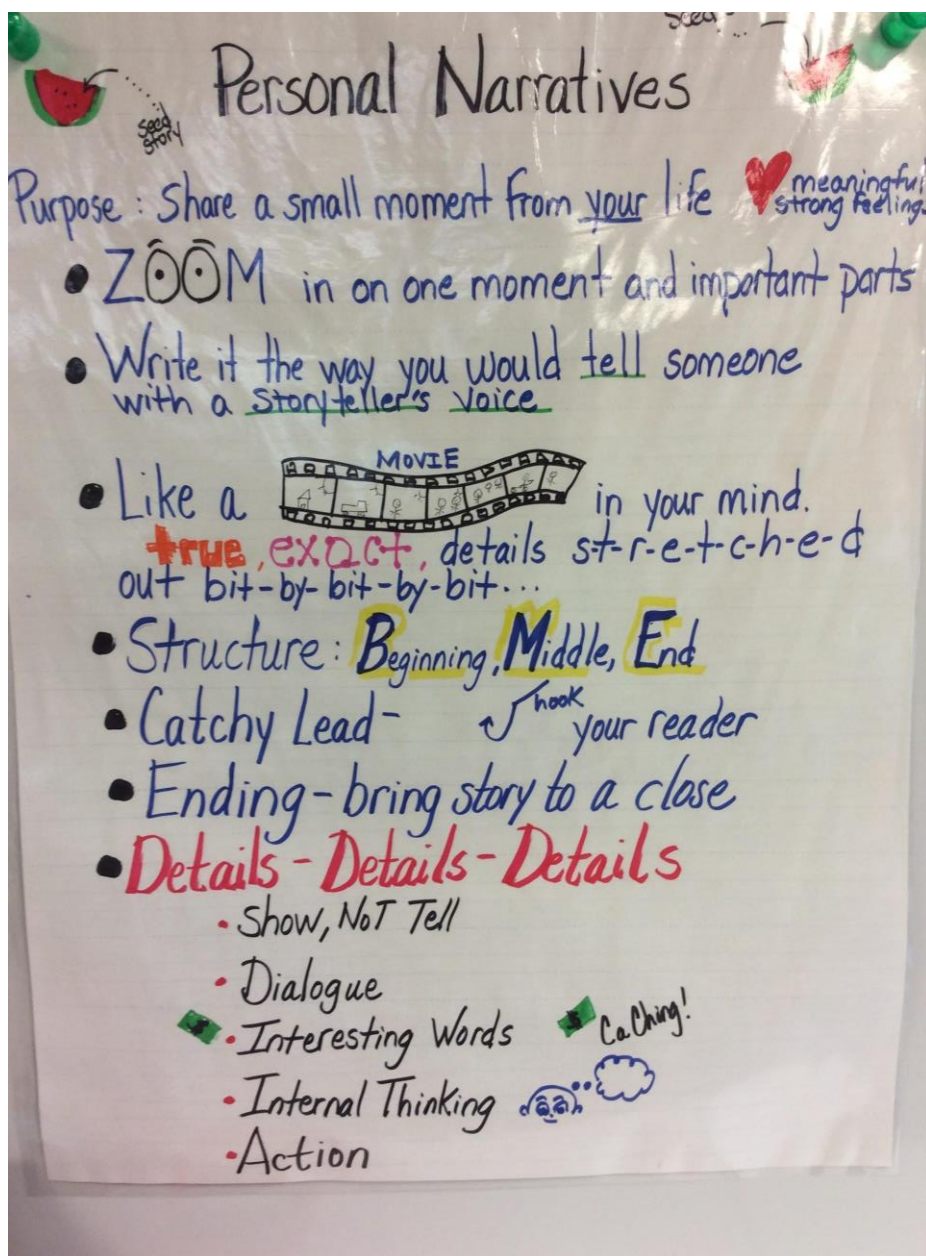 seed
Personal Narratives
seed
story
Purpose : Share a small moment from your life
meaningful
strong feelings
• ZOOM in on one moment and important parts
• Write it the way you would tell someone
with a storyteller's voice
MOVIE
• Like a in your mind.
true, exact, details s-t-r-e-t-c-h-e-d
out bit-by-bit-by-bit...
• Structure: Beginning, Middle, End
• Catchy Lead- hook your reader
• Ending - bring story to a close
• Details - Details - Details
• Show, NOT Tell
• Dialogue
$ • Interesting Words $ CaChing!
• Internal Thinking
• Action